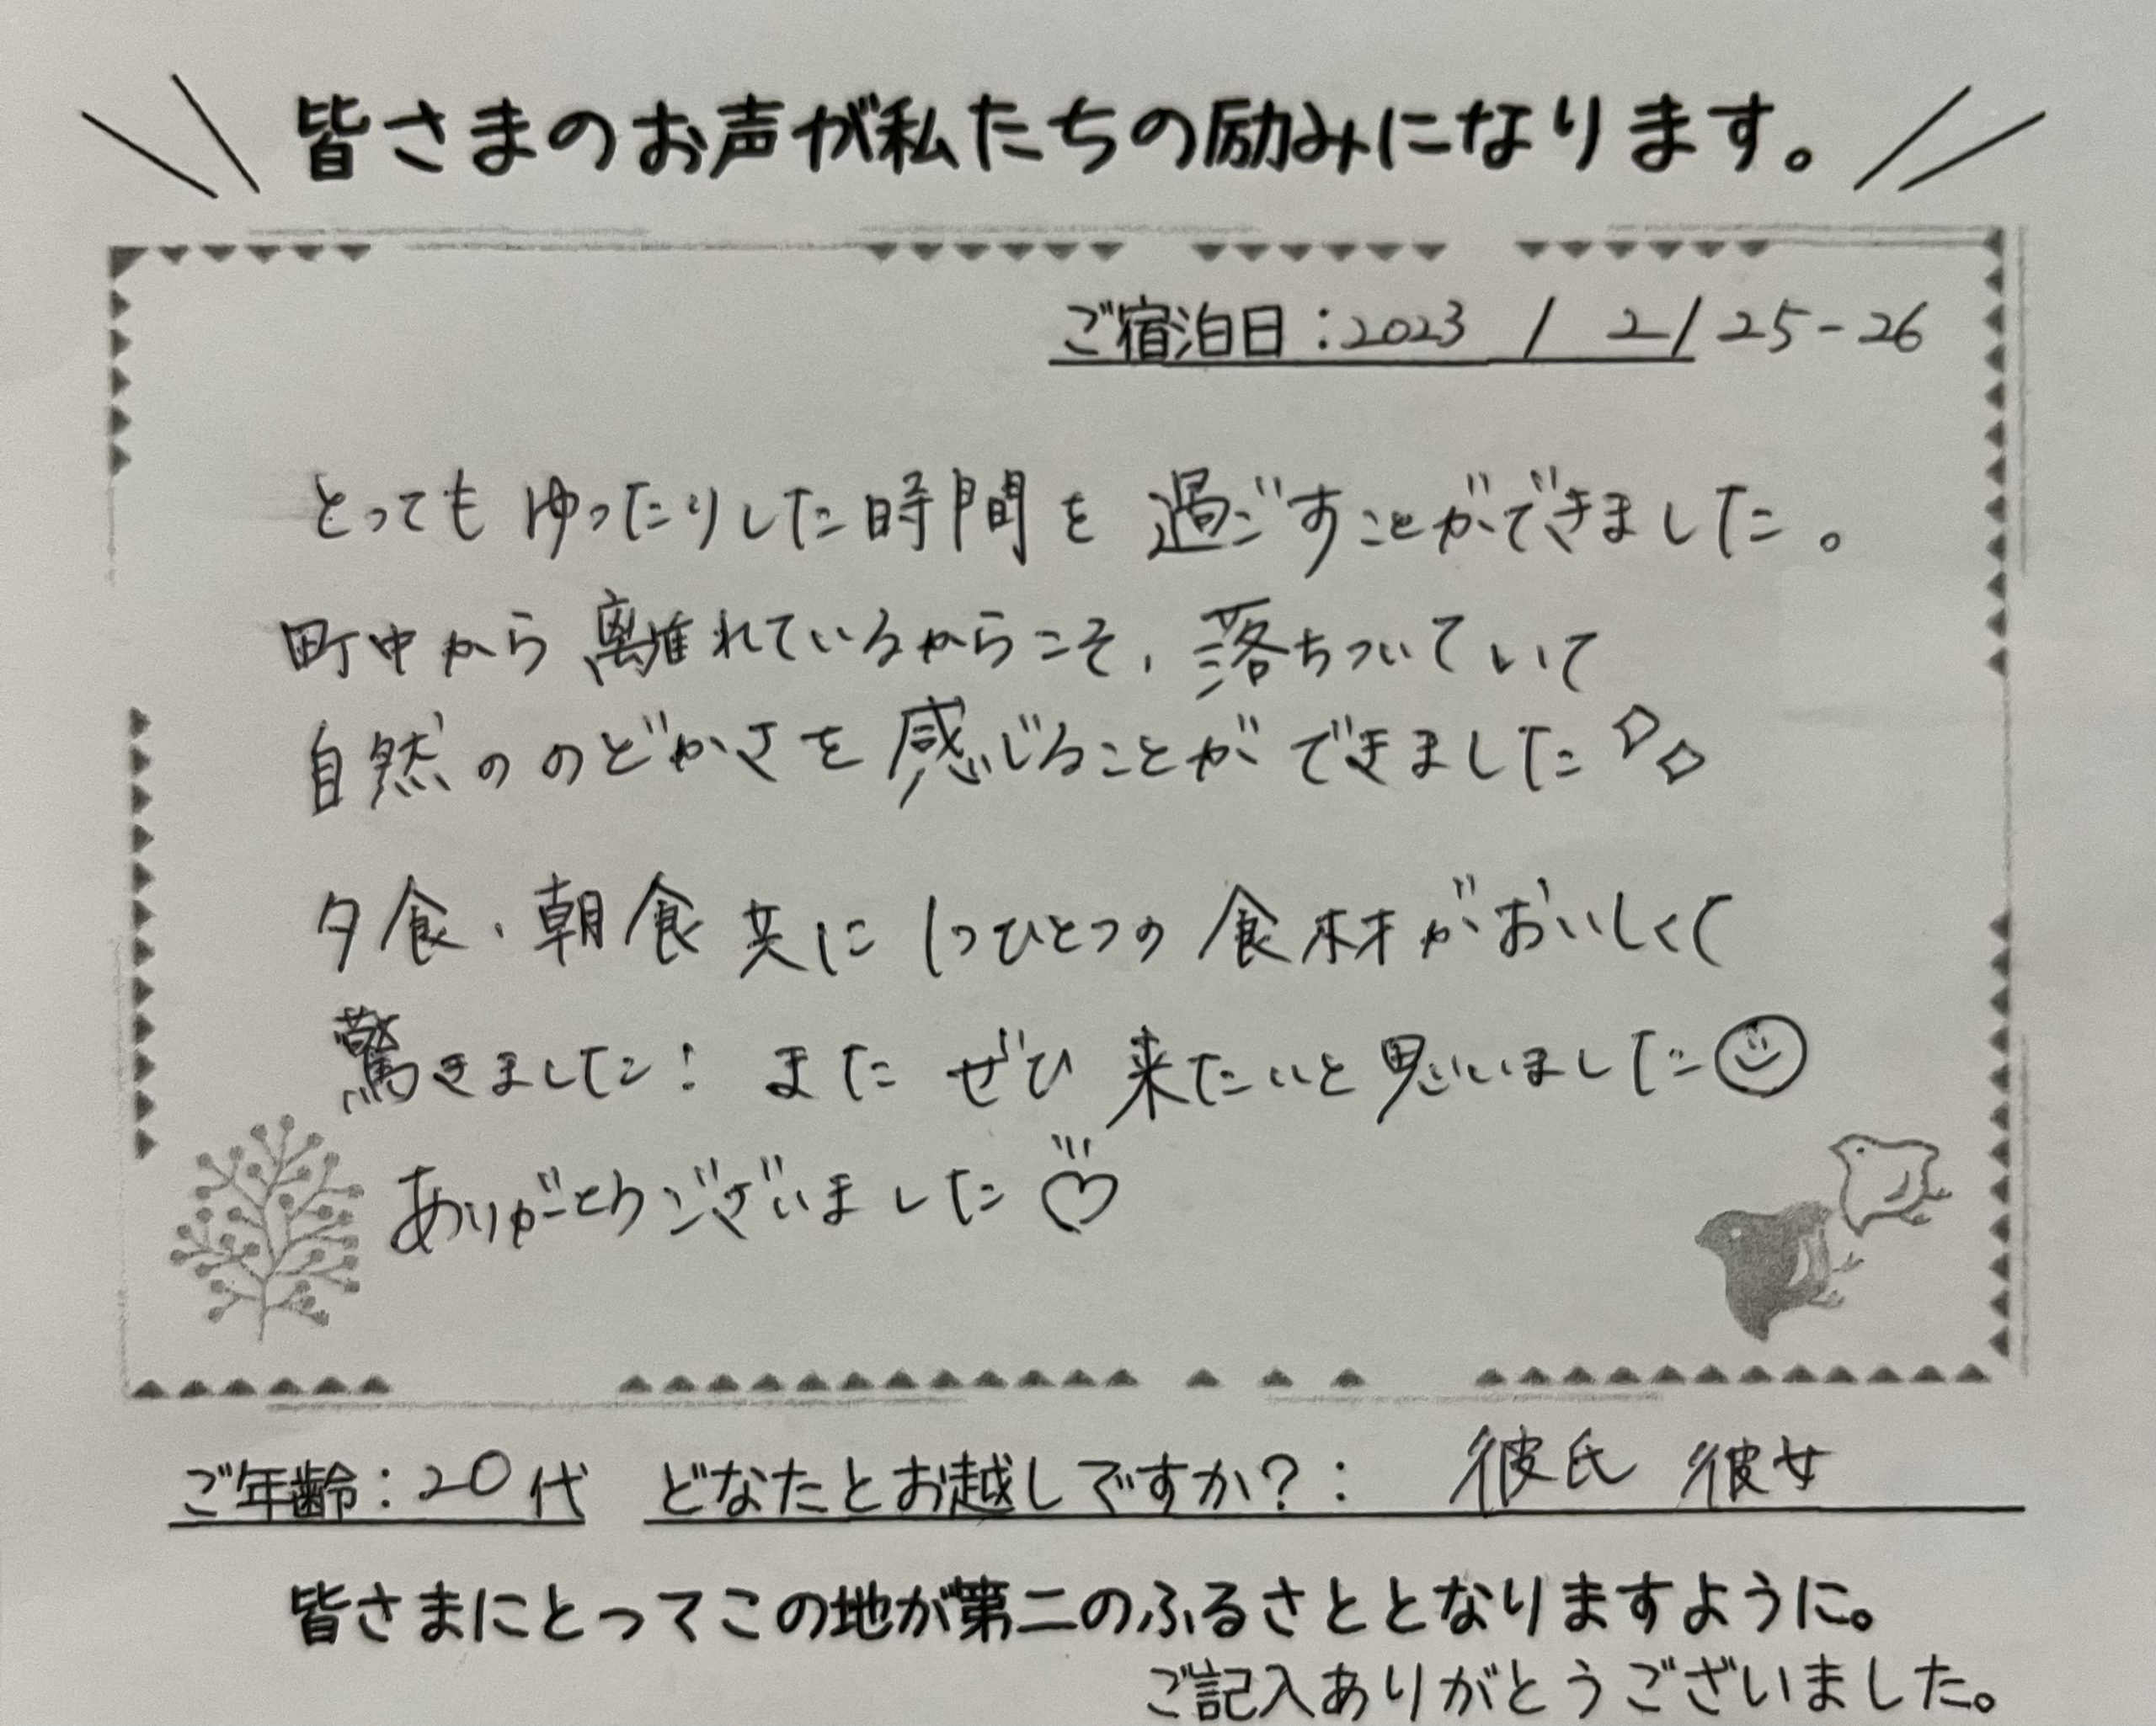 皆さまのお声が私たちの励みになります。
ご宿泊日：2023 / 2 / 25-26
とってもゆったりした時間を過ごすことができました。
町中から離れているからこそ、落ちついていて
自然ののどかさを感じることができました
夕食、朝食共に1つひとつの食材がおいしくて
驚きました！またぜひ来たいと思いました
ありがとうございました
ご年齢：20代 どなたとお越しですか？： 彼氏 彼女
皆さまにとってこの地が第二のふるさととなりますように。
ご記入ありがとうございました。